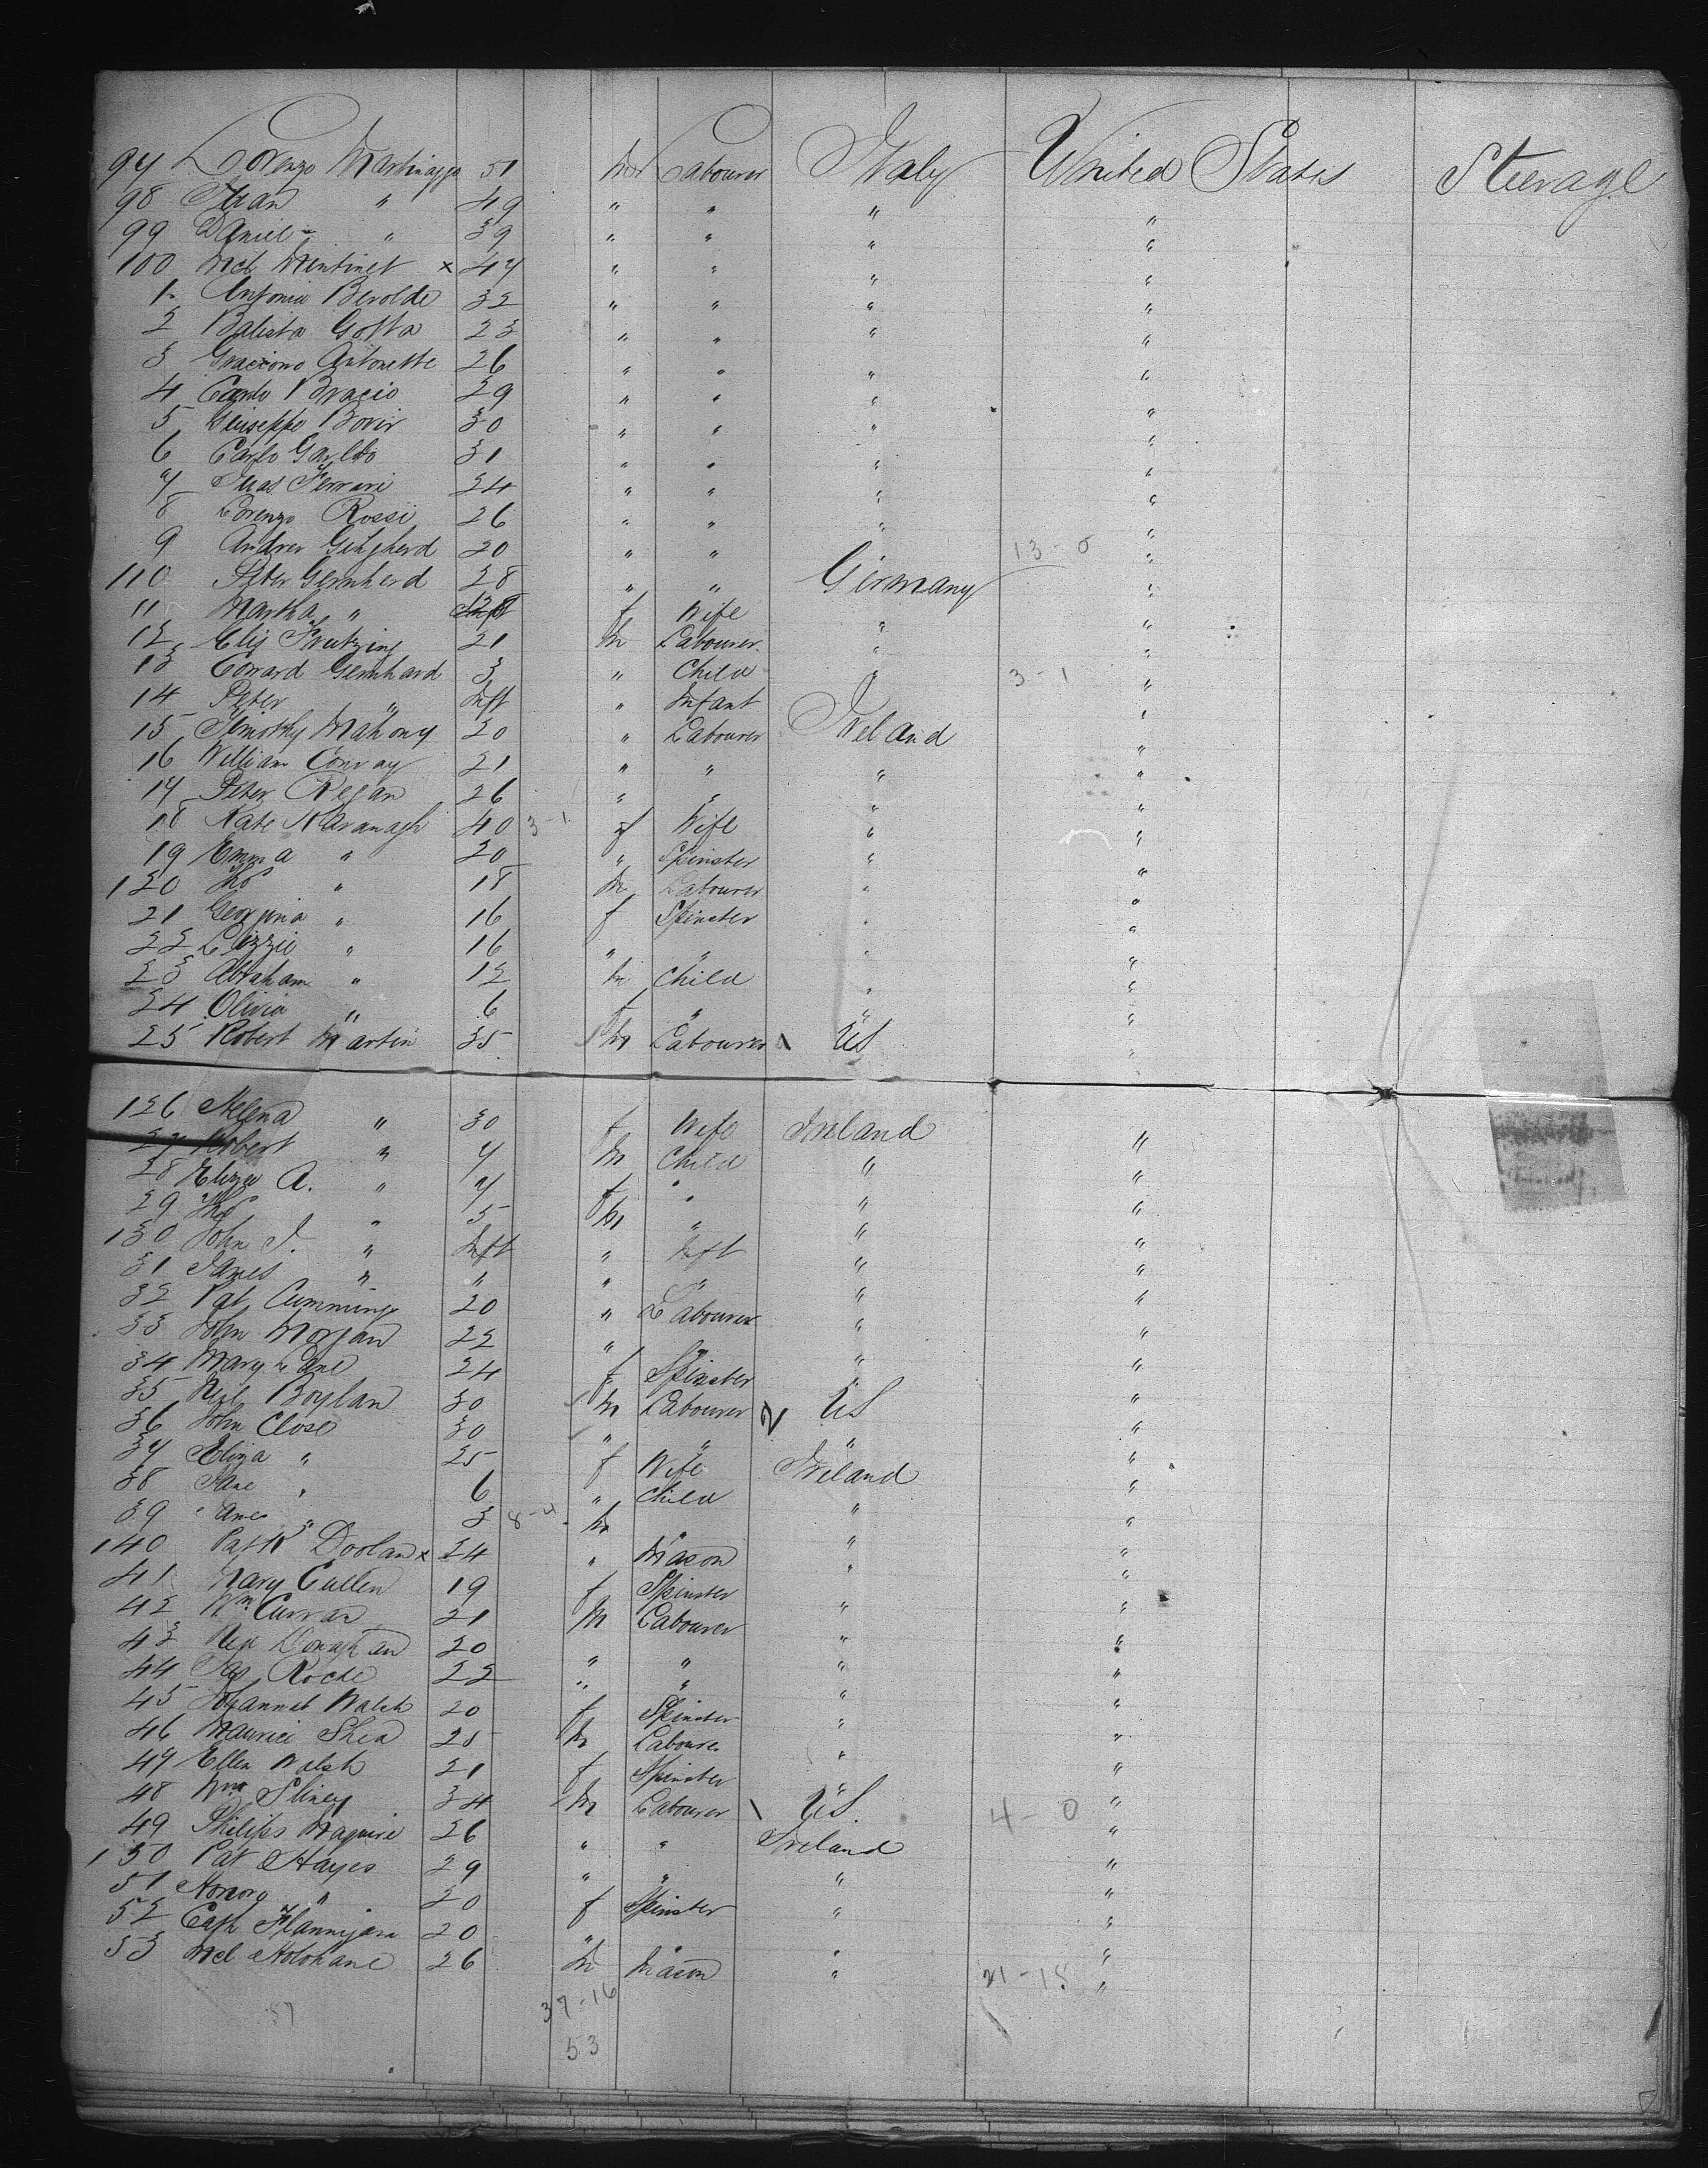 97 Lorenzo Martinazza 51 M Labourer Italy United States Steerage
98 Stean " 49 " " " "
99 Daniel " 39 " " " "
100 Mch Mentinet x 47 " " " "
1 Antonia Berolde 32 " " " "
2 Batista Gotta 23 " " " "
3 Graciono Antonette 26 " " " "
4 Carlo Bracio 29 " " " "
5 Giuseppe Borir 30 " " " "
6 Carlo 31 " " " "
7 Ferrari 24 " " " "
8 Lorenzo Rossi 26 " " " "
9 Andrew 20 " " 13-0 "
110 Peter Gernherd 28 " " Germany "
11 Martha " f Wife " "
12 21 M Labourer " "
13 Conrard Gernhard 3 " Child " 3-1 "
14 Peter " Inft " Infant "
15 Timothy Mahony 20 " Labourer Ireland "
16 William Conray 21 " " " "
17 Peter Regan 26 " " " "
18 Kate Kavanagh 40 3-1 f Wife " "
19 Emma " 20 " Spinster " "
120 Tho^s " 18 M Labourer " "
21 Georgina " 16 f Spinster " "
22 Lizzie " 16 " " " "
23 Abraham " 12 M Child " "
24 Olivia " 6 f " " "
25 Robert Martin 35 M Labourer 1 US "
126 Helena " 30 f Wife Ireland "
27 Robert " 7 M Child " "
28 Eliza A. " 7 f " " "
29 Tho^s " 5 M " " "
130 John J. " Inft " Inft " "
31 James " " " " " "
32 Pat Cummings 20 " Labourer " "
33 John Morgan 22 " " " "
34 Mary Lane 24 f Spinster " "
35 Neil Boylan 30 M Labourer 2 US "
36 John Close 30 " " " "
37 Eliza " 25 f Wife Ireland "
38 Jane " 6 " Child " "
39 James " 3 8-4 M " " "
140 Patk Doolan x 24 " Mason " "
41 Mary Cullen 19 f Spinster " "
42 Wm Curran 21 M Labourer " "
43 20 " " " "
44 Jas Roche 22 " " " "
45 Johannah Walsh 20 f Spinster " "
46 Maurice Shea 25 M Laboure " "
47 Ellen Walsh 21 f Spinster " "
48 Wm Sliney 34 M Labourer 1 US 4-0 "
49 Philips Maguire 26 " " Ireland "
150 Pat Hayes 29 " " " "
51 Honora " 20 f Spinster " "
52 Cath Flannigan 20 " " " "
53 Mcl Holohane 26 M Mason " 21-18 "
57 37-16
53